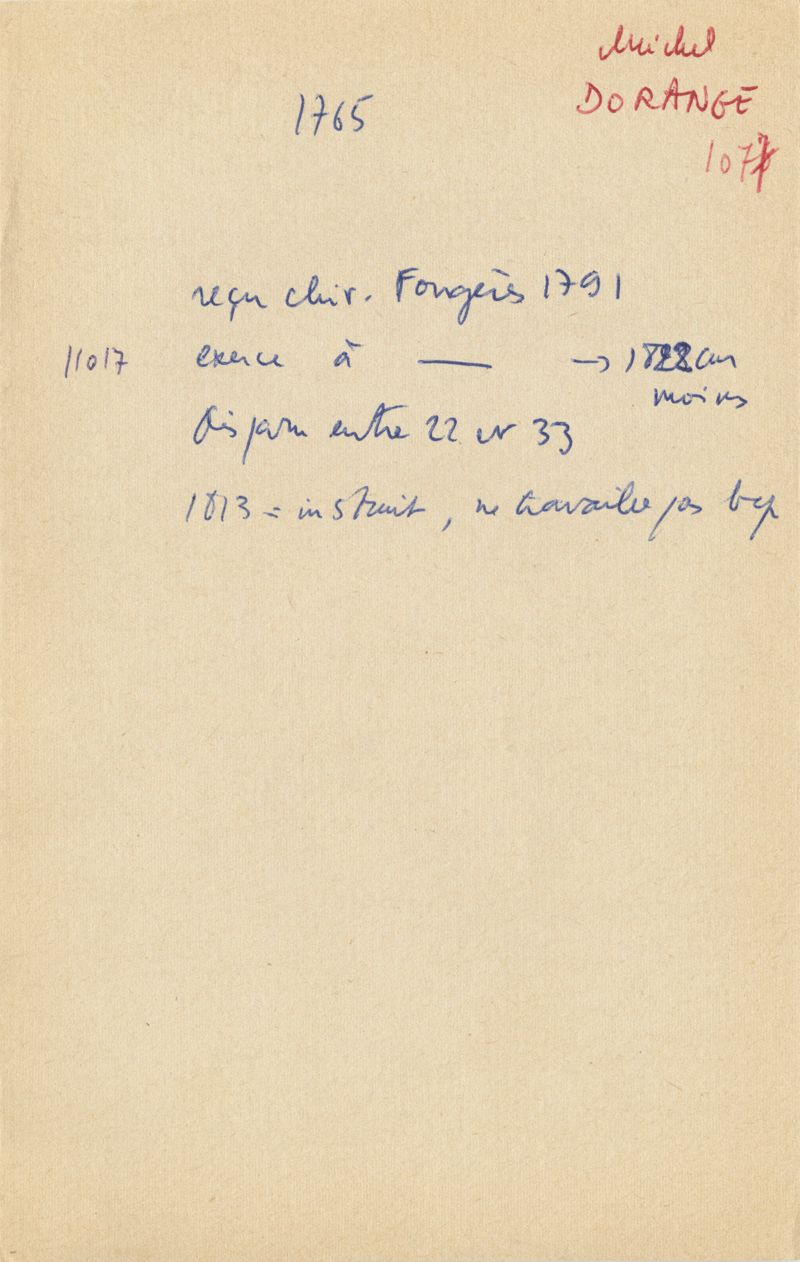 Michel
DORANGE
1077
1765
reçu chir. Fougères 1791
11017 exerce à — → 1822 au
moins
disparu entre 22 et 33
1813 = instruit, ne travaille pas bcp